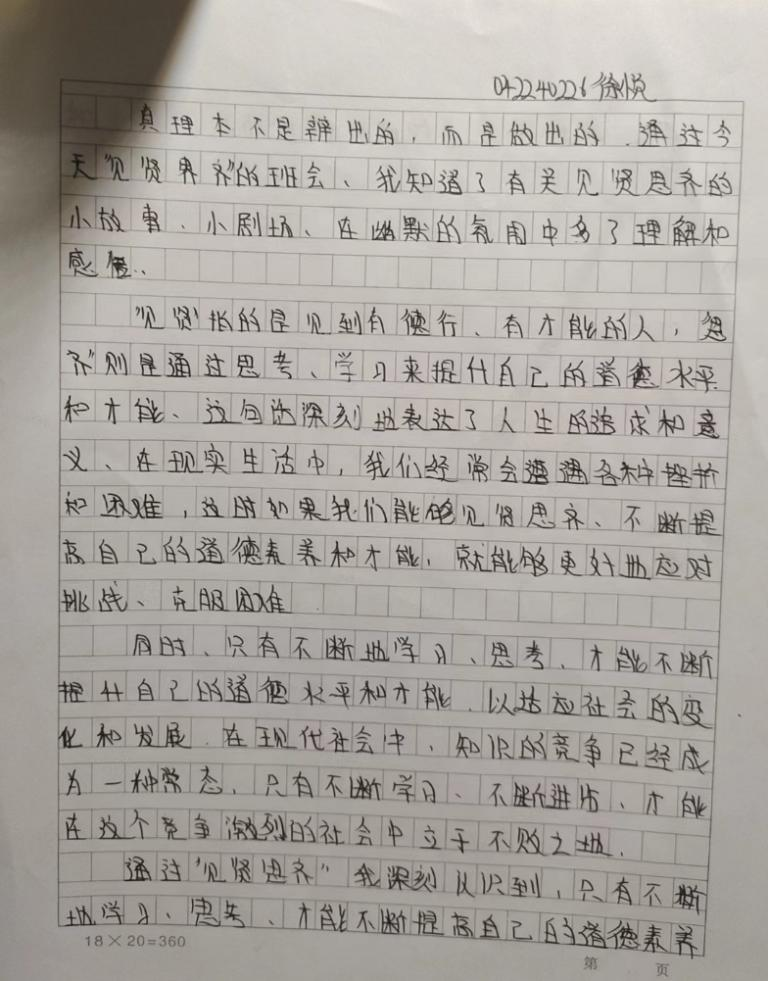 042240226 徐悦
真理本不是辩出的，而是做出的．通过今
天"见贤思齐"的班会、我知道了有关见贤思齐的
小故事、小剧场、在幽默的氛围中多了理解和
感悟．
"见贤"指的是见到有德行、有才能的人，思
齐"则是通过思考、学习来提升自己的道德水平
和才能、这句话深刻地表达了人生的追求和意
义、在现实生活中，我们经常会遭遇各种挫折
和困难，这时如果我们能够见贤思齐、不断提
高自己的道德素养和才能，就能够更好地应对
挑战、克服困难
同时、只有不断地学习、思考、才能不断
提升自己的道德水平和才能．以适应社会的变
化和发展．在现代社会中、知识的竞争已经成
为一种常态，只有不断学习、不断进步、才能
在这个竞争激烈的社会中立于不败之地．
通过"见贤思齐"我深刻认识到，只有不断
地学习、思考、才能不断提高自己的道德素养
18×20=360
第 页